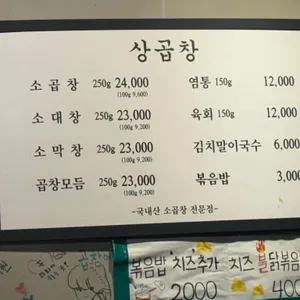 상곱창
소 곱 창 250g 24,000
(100g 9,600)
소 대 창 250g 23,000
(100g 9,200)
소 막 창 250g 23,000
(100g 9,200)
곱창모듬 250g 23,000
(100g 9,200)
염통 150g 12,000
육회 150g 12,000
김치말이국수 6,000
볶음밥 3,000
-국내산 소곱창 전문점-
볶음밥 치즈추가 치즈 불닭볶음
2000